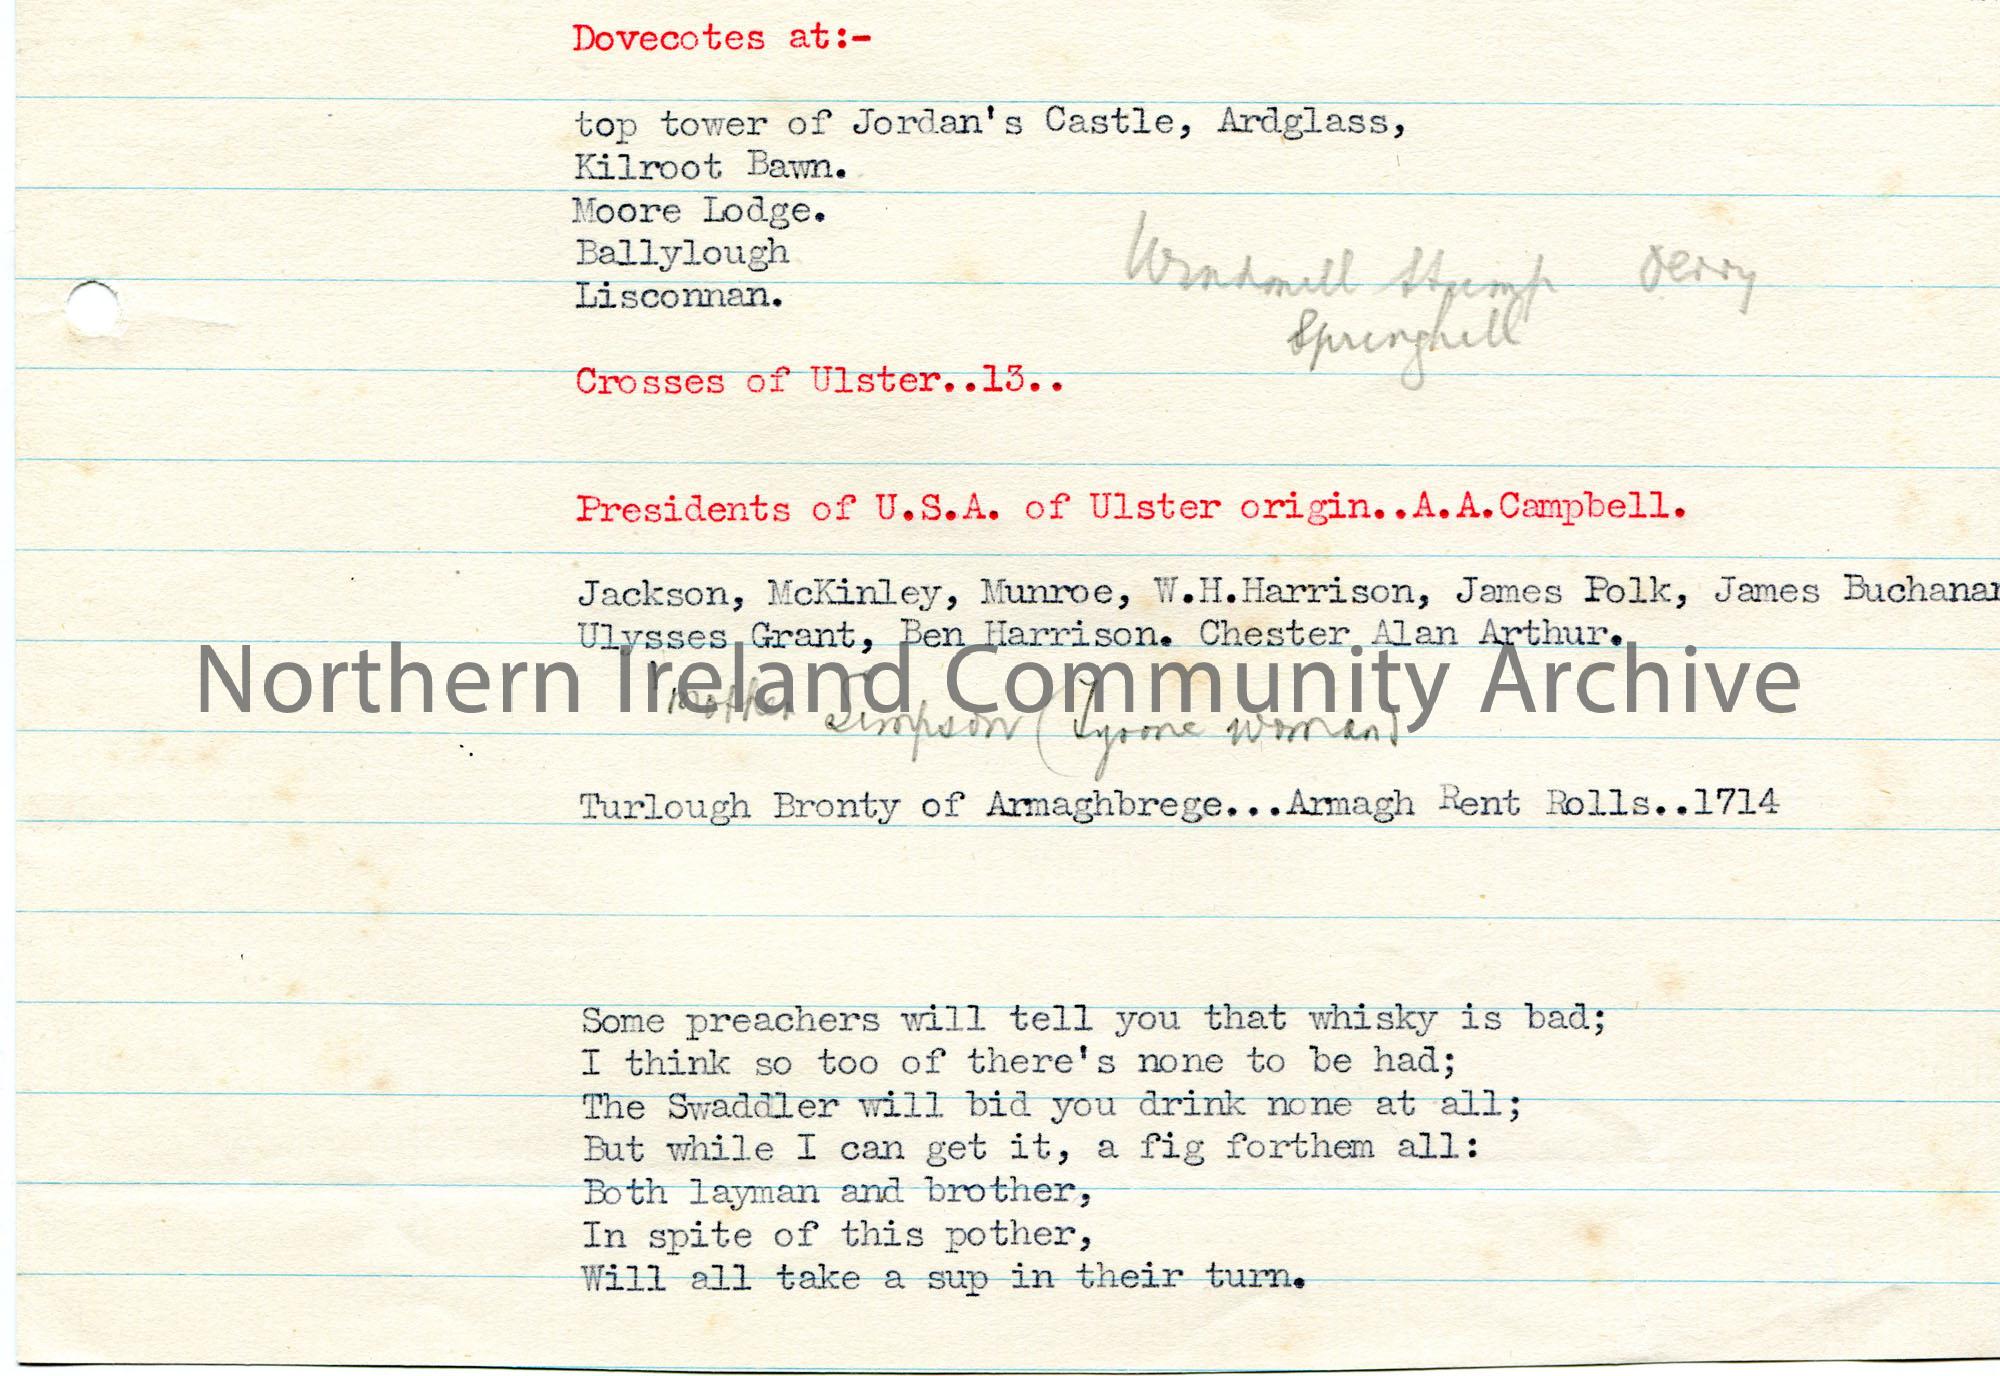 Dovecotes at:-
top tower of Jordan's Castle, Ardglass,
Kilroot Bawn.
Moore Lodge.
Ballylough
Lisconnan.
Windmill Stump Derry
Springhill
Crosses of Ulster..13..
Presidents of U.S.A. of Ulster origin..A.A.Campbell.
Jackson, McKinley, Munroe, W.H.Harrison, James Polk, James Buchanan
Ulysses Grant, Ben Harrison. Chester Alan Arthur.
Northern Ireland Community Archive
mother Simpson (Tyrone woman)
Turlough Bronty of Armaghbrege...Armagh Rent Rolls..1714
Some preachers will tell you that whisky is bad;
I think so too of there's none to be had;
The Swaddler will bid you drink none at all;
But while I can get it, a fig forthem all:
Both layman and brother,
In spite of this pother,
Will all take a sup in their turn.